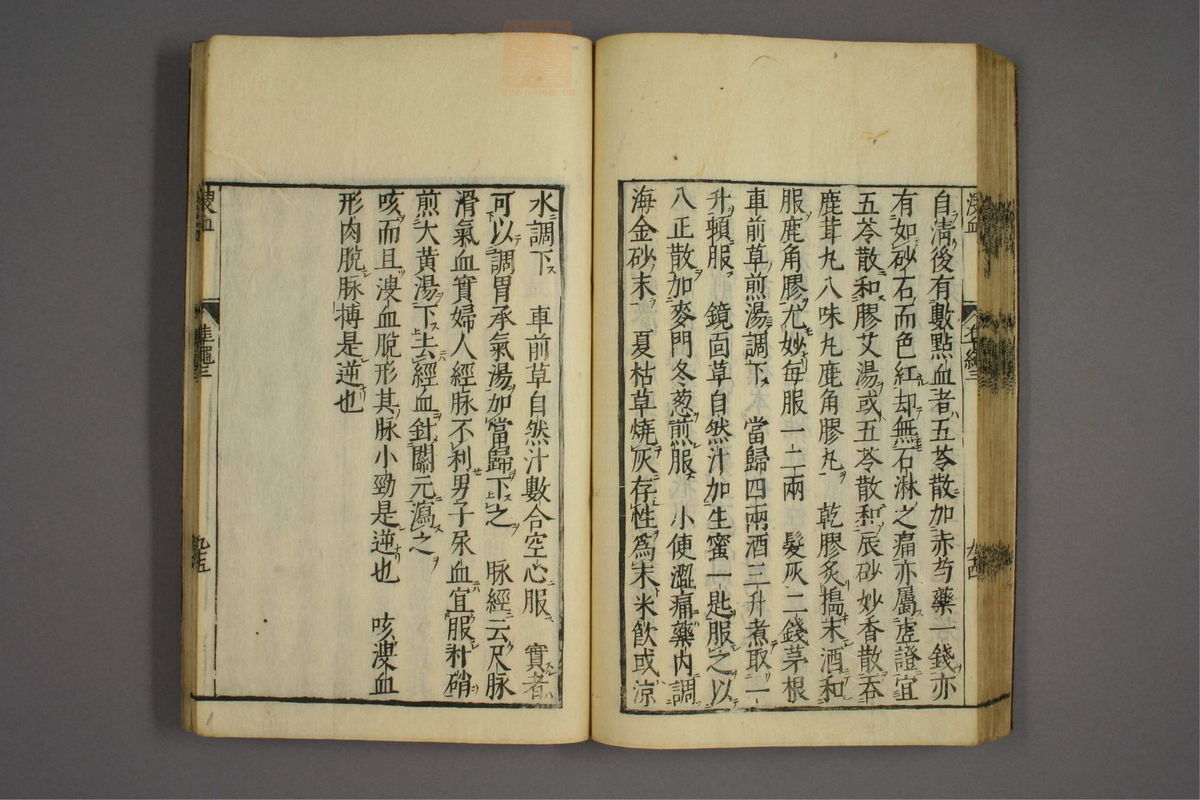 自清後有數點血者五苓散加赤芍藥一錢亦
有如砂石而色紅却無石淋之痛亦屬虗證宜
五苓散和膠艾湯或五苓散和辰砂妙香散吞
鹿茸丸八味丸鹿角膠丸　乾膠炙搗末酒和
服鹿角膠尤妙每服一二兩　髮灰二錢茅根
車前草煎湯調下　當歸四兩酒三升煮取一
升頓服　鏡面草自然汁加生蜜一匙服之以
八正散加麥門冬葱煎服　小便澀痛藥內調
海金砂末　夏枯草燒灰存性爲末米飲或凉
水調下　車前草自然汁數合空心服　實者
可以調胃承氣湯加當歸下之　脉經云尺脉
滑氣血實婦人經脉不利男子尿血宜服朴硝
煎大黃湯下去經血針關元瀉之
咳而且溲血脫形其脉小勁是逆也　咳溲血
形肉脫脉搏是逆也
溲血
準繩三
九五
溲血
九四